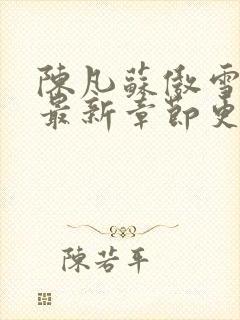 陳凡蘇傲雪
最新章節更
陳若平